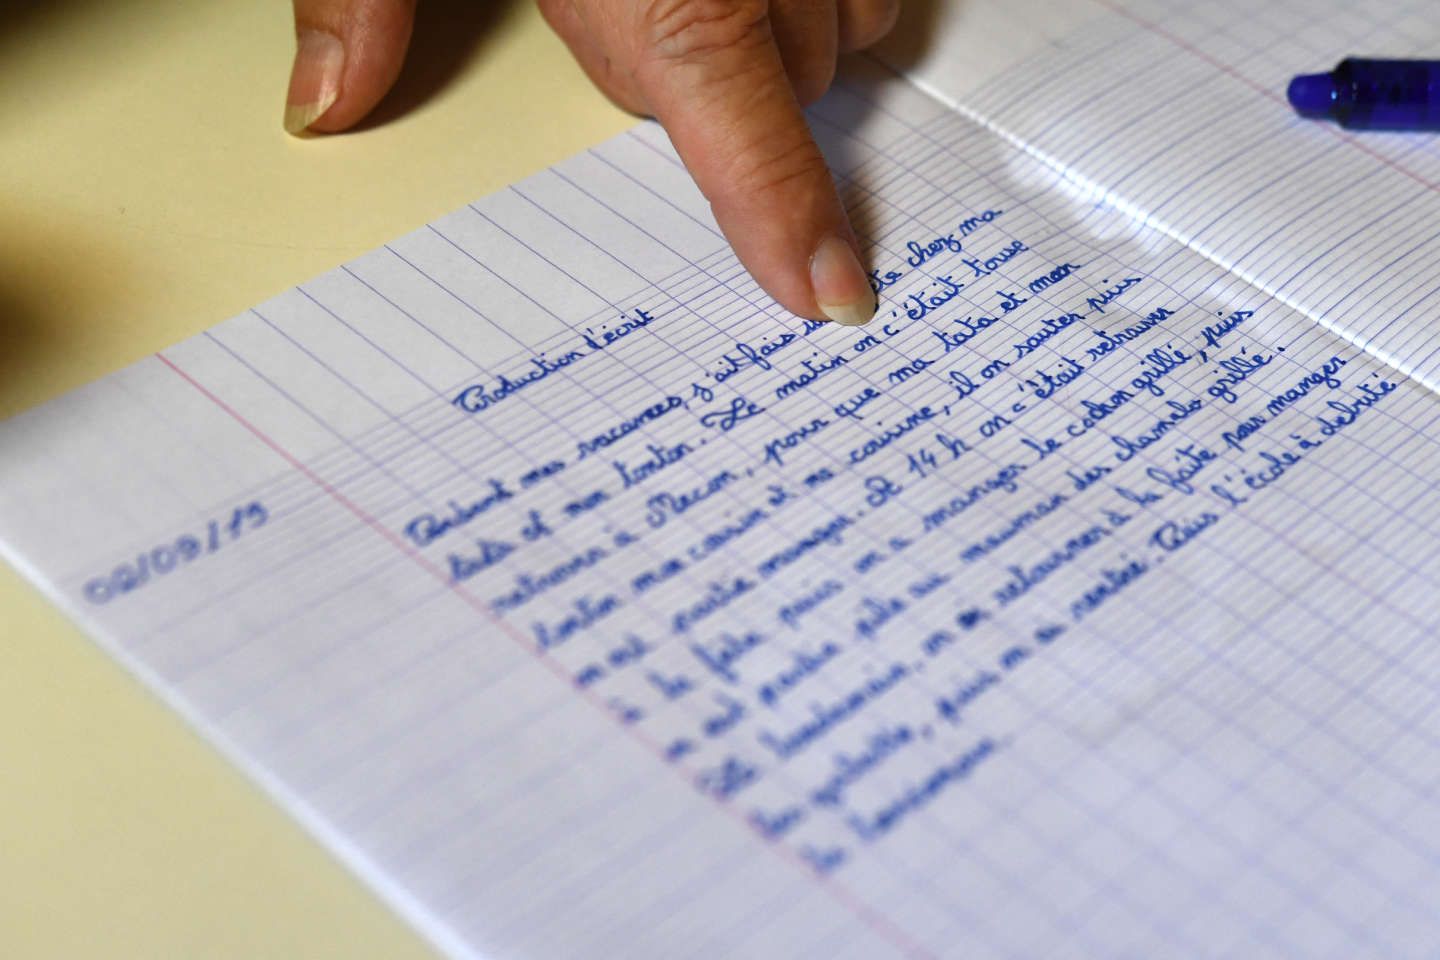 Production d'écrit
02/09/19
Pendant mes vacances, j'ait fais une fête chez ma
tata et mon tonton. Le matin on c'était touse
retrouver à Mecon, pour que ma tata et mon
tonton mon cousin et ma cousine, il on sauter puis
on est partie manger. At 14 h on c'était retrouver
à la fête puis on a manger le cochon grillé, puis
on est partie au des chamalo grillé.
Le lendemain, on retourner à la faite pour manger
des, puis on a rentré. Puis l'école à debuté